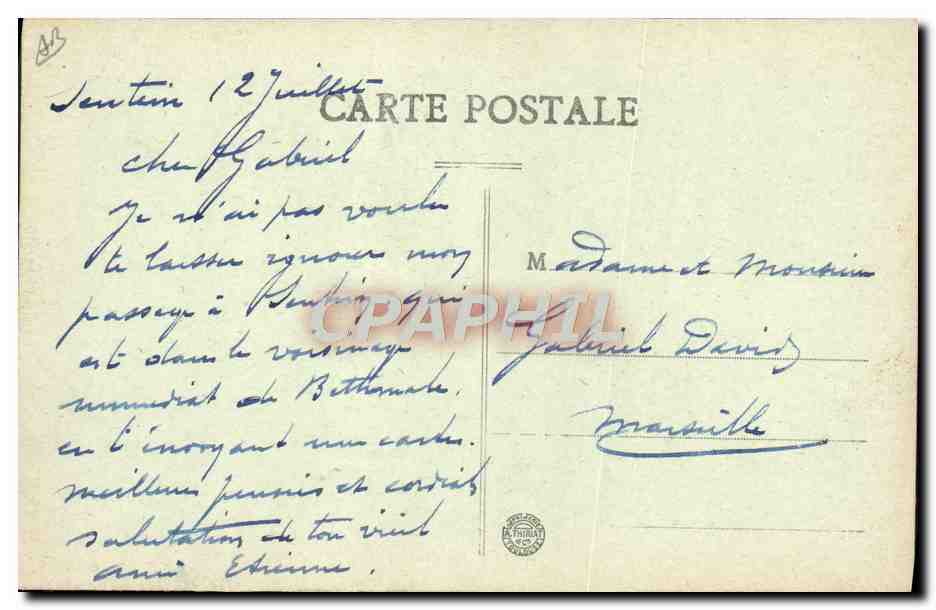 AB
Sentein 12 Juillet
CARTE POSTALE
cher Gabriel
Je n'ai pas voulu
te laisser ignorer mon
passage à Sentein qui
est dans le voisinage
immediat de Bethmale.
en t'envoyant une carte.
meilleures pensées et cordiales
salutations de ton vieil
ami Etienne.
Madame et Monsieur
Gabriel David
Marseille
CPAPHIL
THIRIAT
TOULOUSE